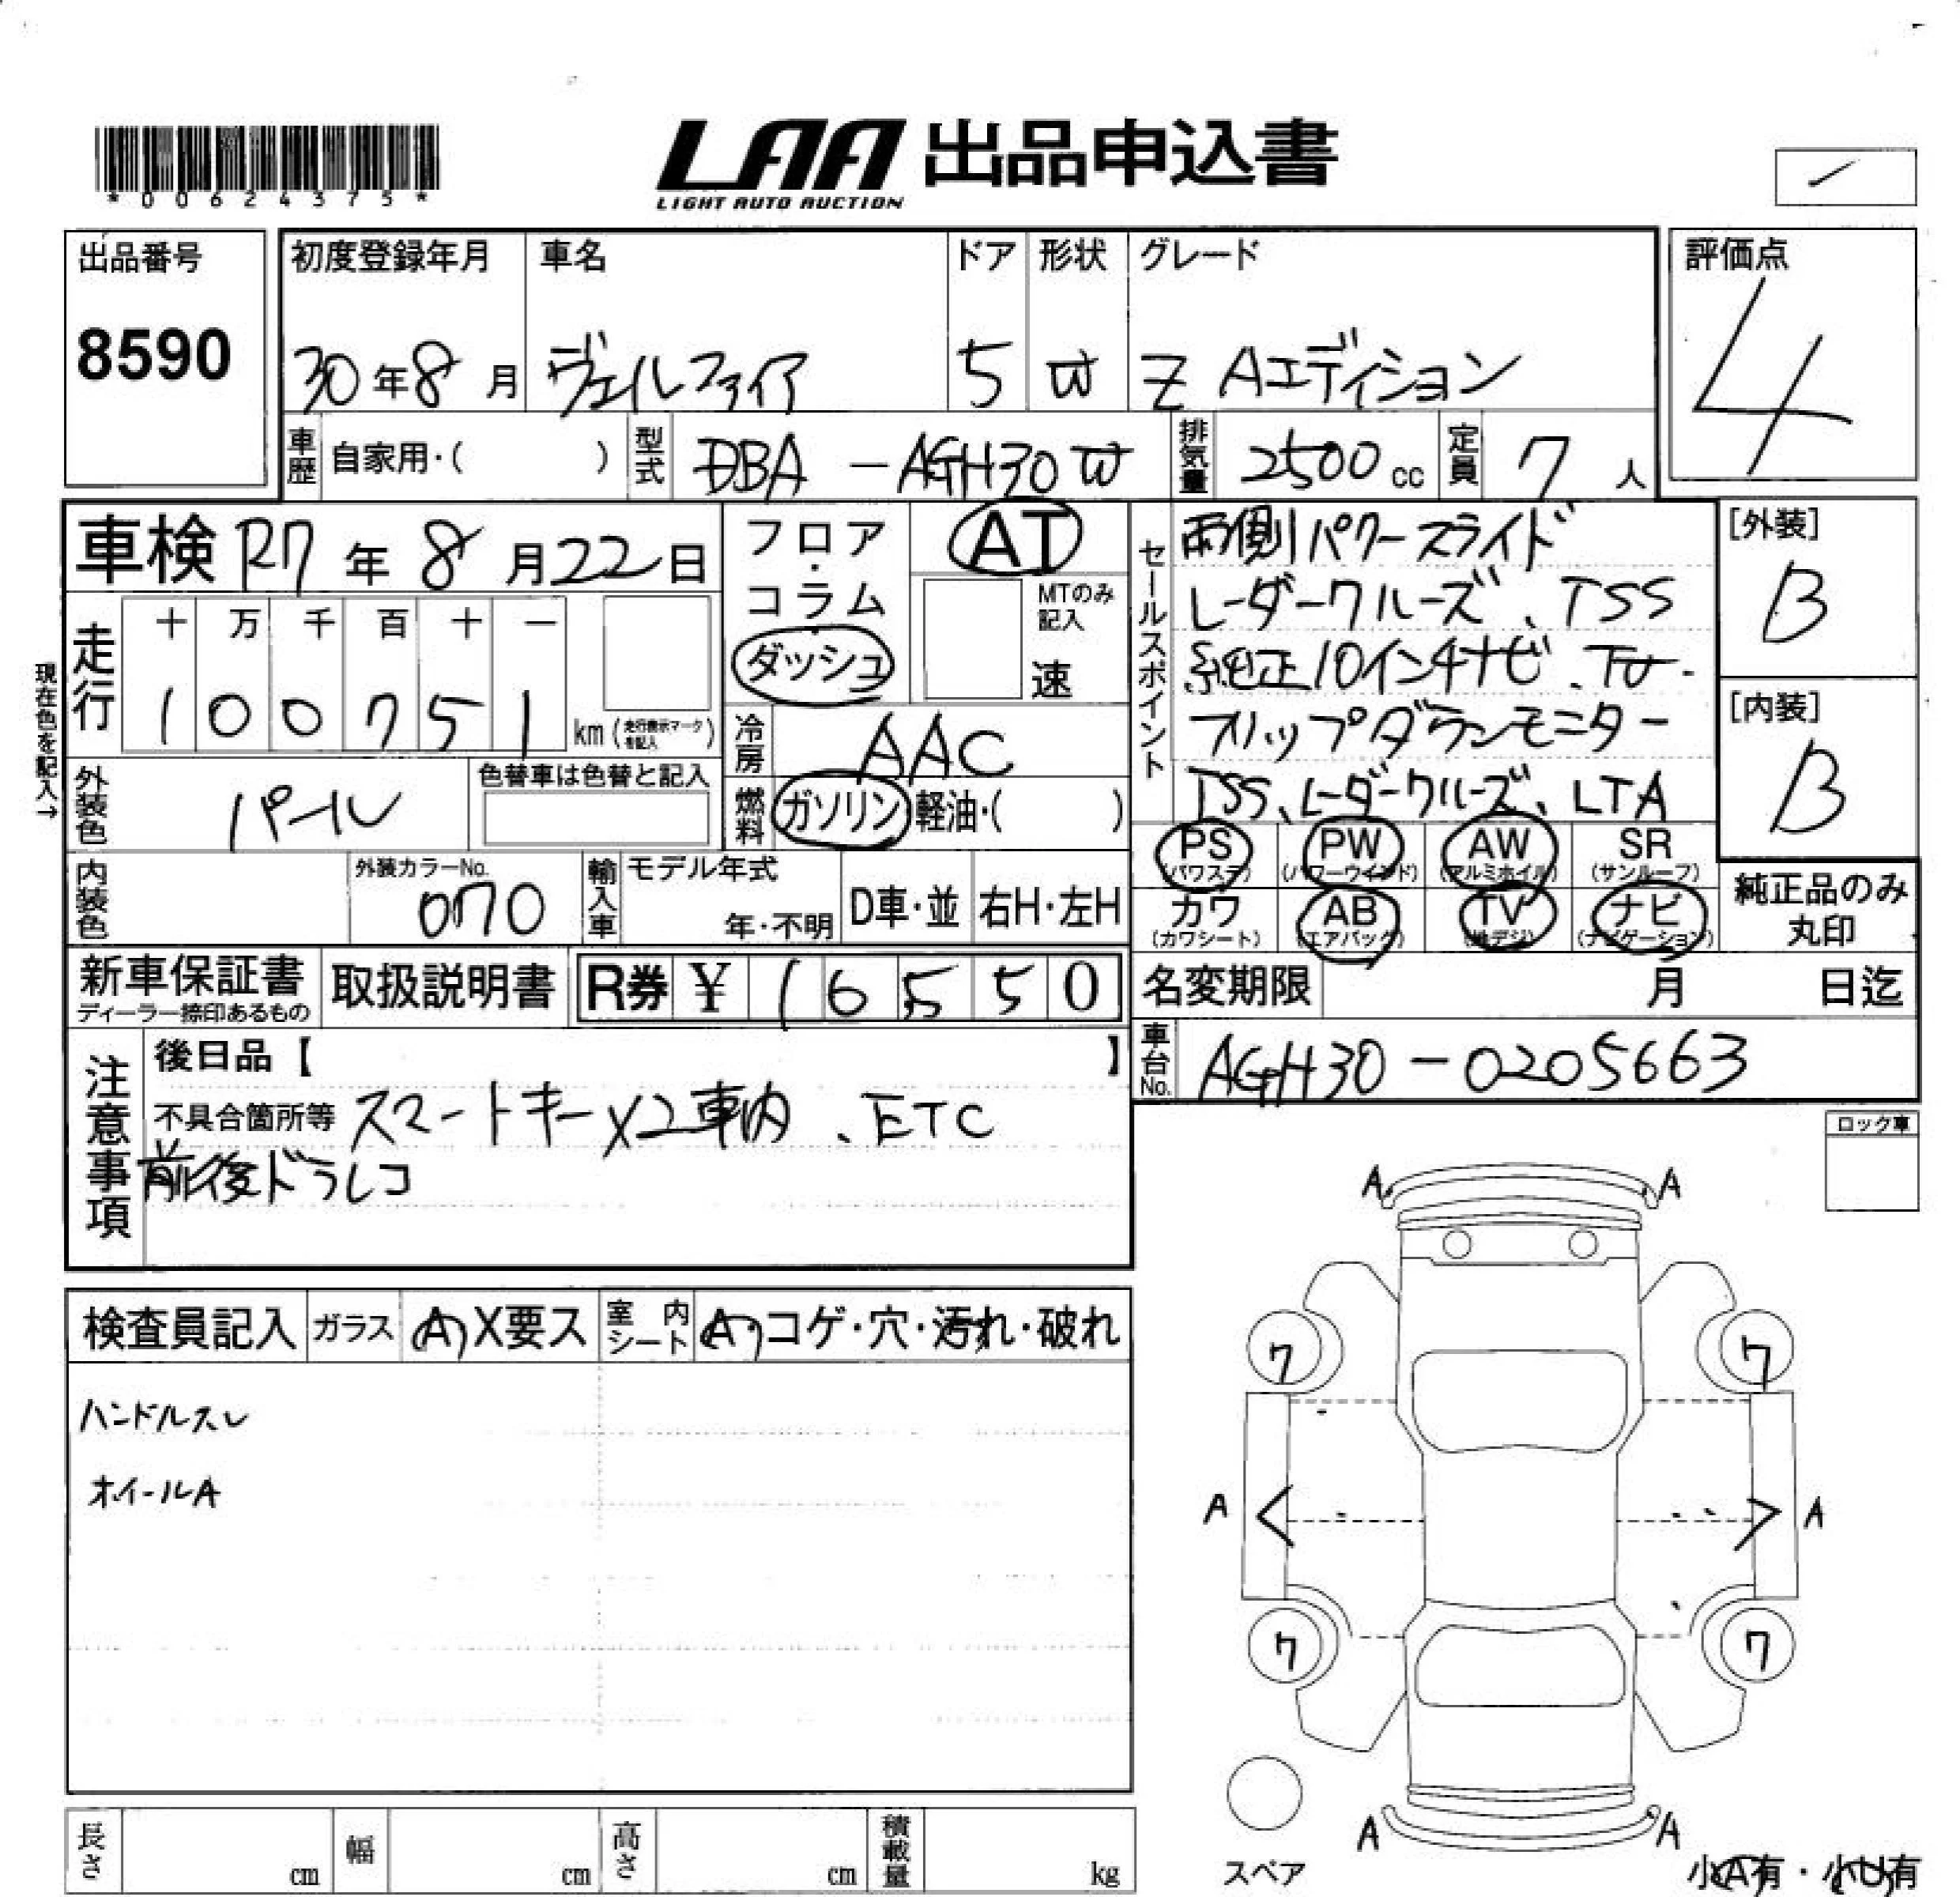 *00624375*
LAA 出品申込書
LIGHT AUTO AUCTION
出品番号
8590
初度登録年月
30年8月
車名
ヴェルファイア
ドア
5
形状
W
グレード
Z Aエディション
評価点
4
車歴 自家用・( )
型式 DBA-AGH30W
排気量 2500cc
定員 7人
車検 R7年8月22日
フロア・コラム・ダッシュ
AT
MTのみ記入
速
セールスポイント
両側パワースライド
レーダークルーズ、TSS
純正10インチナビ、TV.
フリップダウンモニター
TSS、レーダークルーズ、LTA
[外装]
B
[内装]
B
現在色を記入→
走行
十 万 千 百 十 一
1 0 0 7 5 1 km(走行表示マークを記入)
冷房 AAC
外装色 パール
色替車は色替と記入
燃料 ガソリン 軽油・( )
PS (パワステ)
PW (パワーウインド)
AW (アルミホイル)
SR (サンルーフ)
カワ (カワシート)
AB (エアバック)
TV (地デジ)
ナビ (ナビゲーション)
純正品のみ丸印
内装色
外装カラーNo.
070
輸入車
モデル年式
年・不明
D車・並
右H・左H
新車保証書
ディーラー捺印あるもの
取扱説明書
R券 ¥ 1 6 5 5 0
名変期限 月 日迄
車台No. AGH30-0205663
注意事項
後日品【 】
不具合箇所等 スマートキーX2車内、ETC
前後ドラレコ
ロック車
A A
検査員記入
ガラス A・X要ス
室内シート A・コゲ・穴・汚れ・破れ
ハンドルスレ
ホイールA
7 7
A A
7 7
A A
スペア
小A有・小U有
長さ cm
幅 cm
高さ cm
積載量 kg